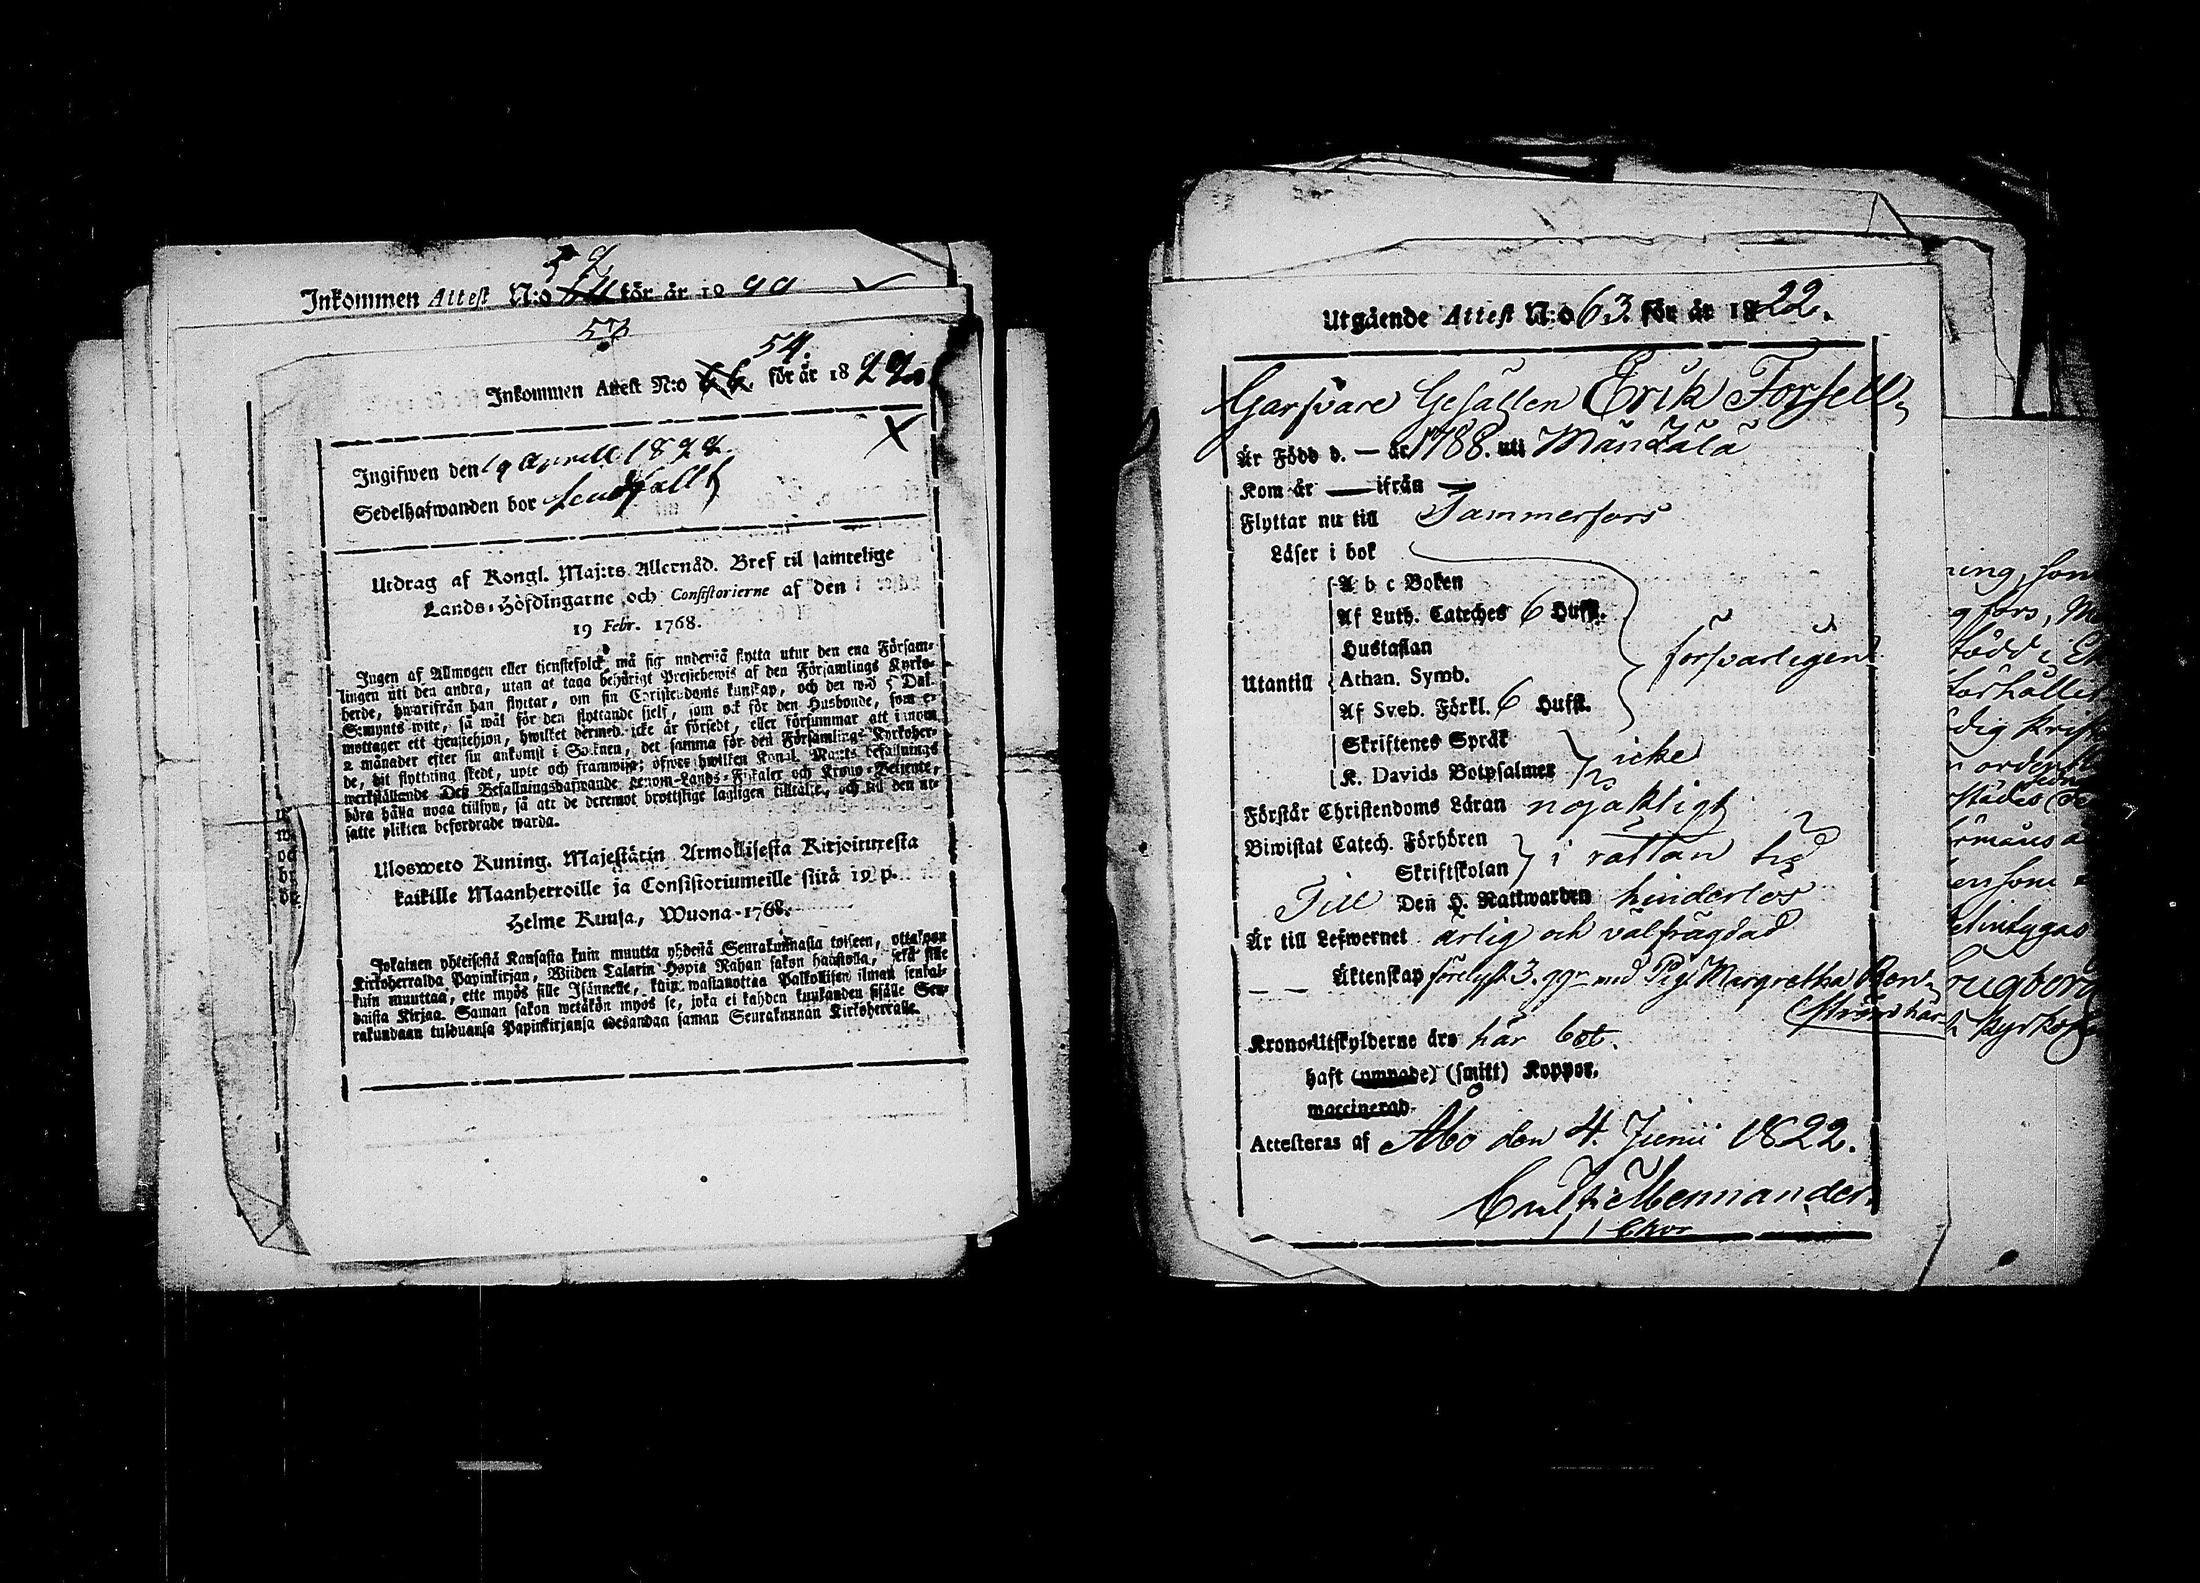 Inkommen Attest N:o för år 18
57
54.
Inkommen Attest N:o 66. för år 1822
X
Ingifwen den 19 Aprill 1822
Sedelhafwanden bor
Utdrag af Kongl. Maj:ts Allernåd. Bref til samtelige
Lands-Höfdingarne och Consistorierne af den
19 Febr. 1768.
Ingen af Allmogen eller tjenstefolck må sig understå flytta utur den ena Försam-
lingen uti den andra, utan at taga behörigt Prestebewis af den Församlings Kyrko-
herde, hwarifrån han flyttar, om sin Christendoms kunskap, och det wid 5 Dal.
S:mynts wite, så wäl för den flyttande sielf, som ock för den Husbonde, som e-
mottager ett tjenstehjon, hwilket dermed icke är försedt, eller försummar att innom
2 månader efter sin ankomst i Socknen, det samma för den Församlings Kyrkoher-
de, dit flyttning skedt, upte och framwisa; öfwer hwilken Kongl. Maj:ts befallnings
werkställande Deß Befallningshafwande genom Lands-Fiskaler och Krono-Betjente,
böra hålla noga tillsyn, så att de deremot brottslige lagligen tilltalte, och till den ut-
satte plikten befordrade warda.
Ulosweto Kuning. Majestätin Armollisesta Kirjoituxesta
kaikille Maanherroille ja Consistoriumeille siitä 19 p.
Helme Kuusa, Wuona 1768.
Jokainen yhteisestä Kansasta kuin muutta yhdestä Seurakunnasta toiseen, ottakoon
Kirkoherralda Papinkirjan, Wiiden Talarin Hopia Rahan sakon haastolla, sekä sille
kuin muuttaa, ette myös sille Isännelle, kuin wastanottaa Palkollisen ilman senkal-
daista Kirjaa. Saman sakon wetäkön myös se, joka ei kahden kuukauden sisälle Seu-
rakundaan tulduansa Papinkirjansa edesandaa saman Seurakunnan Kirkoherralle.
Utgående Attest N:o 63. för år 1822.
Garfvare Gesällen Erik Forsell,
Är Född d. — år 1788. uti Mändälä
Kom år — ifrån —
Flyttar nu till Tammerfors
Läser i bok
A b c Boken
Af Luth. Cateches 6 Hufst.
Hustaflan
Utantill Athan. Symb. försvarligen
Af Sveb. Förkl. 6 Hufst.
Skriftenes Språk
K. Davids Botpsalmer icke
Förstår Christendoms Läran nöjaktigt
Biwistat Catech. Förhören
Skriftskolan i rättan tid
Till Den H. Nattwarden hinderlös
Är till Lefwernet ärlig och välfrägdad
— — Äktenskap förelyst 3. ggr med Pig. Margretha
härst.
Krono-Utskylderne äro här bet.
haft (ympade) (smitt) Koppor.
waccinerad.
Attesteras af Åbo den 4. Junii 1822.
Mennander
ning, som
g fors, M
född i
förhållet
dig Krist
n orden
städes
ersom
etintygas
rugborg
Kyrko